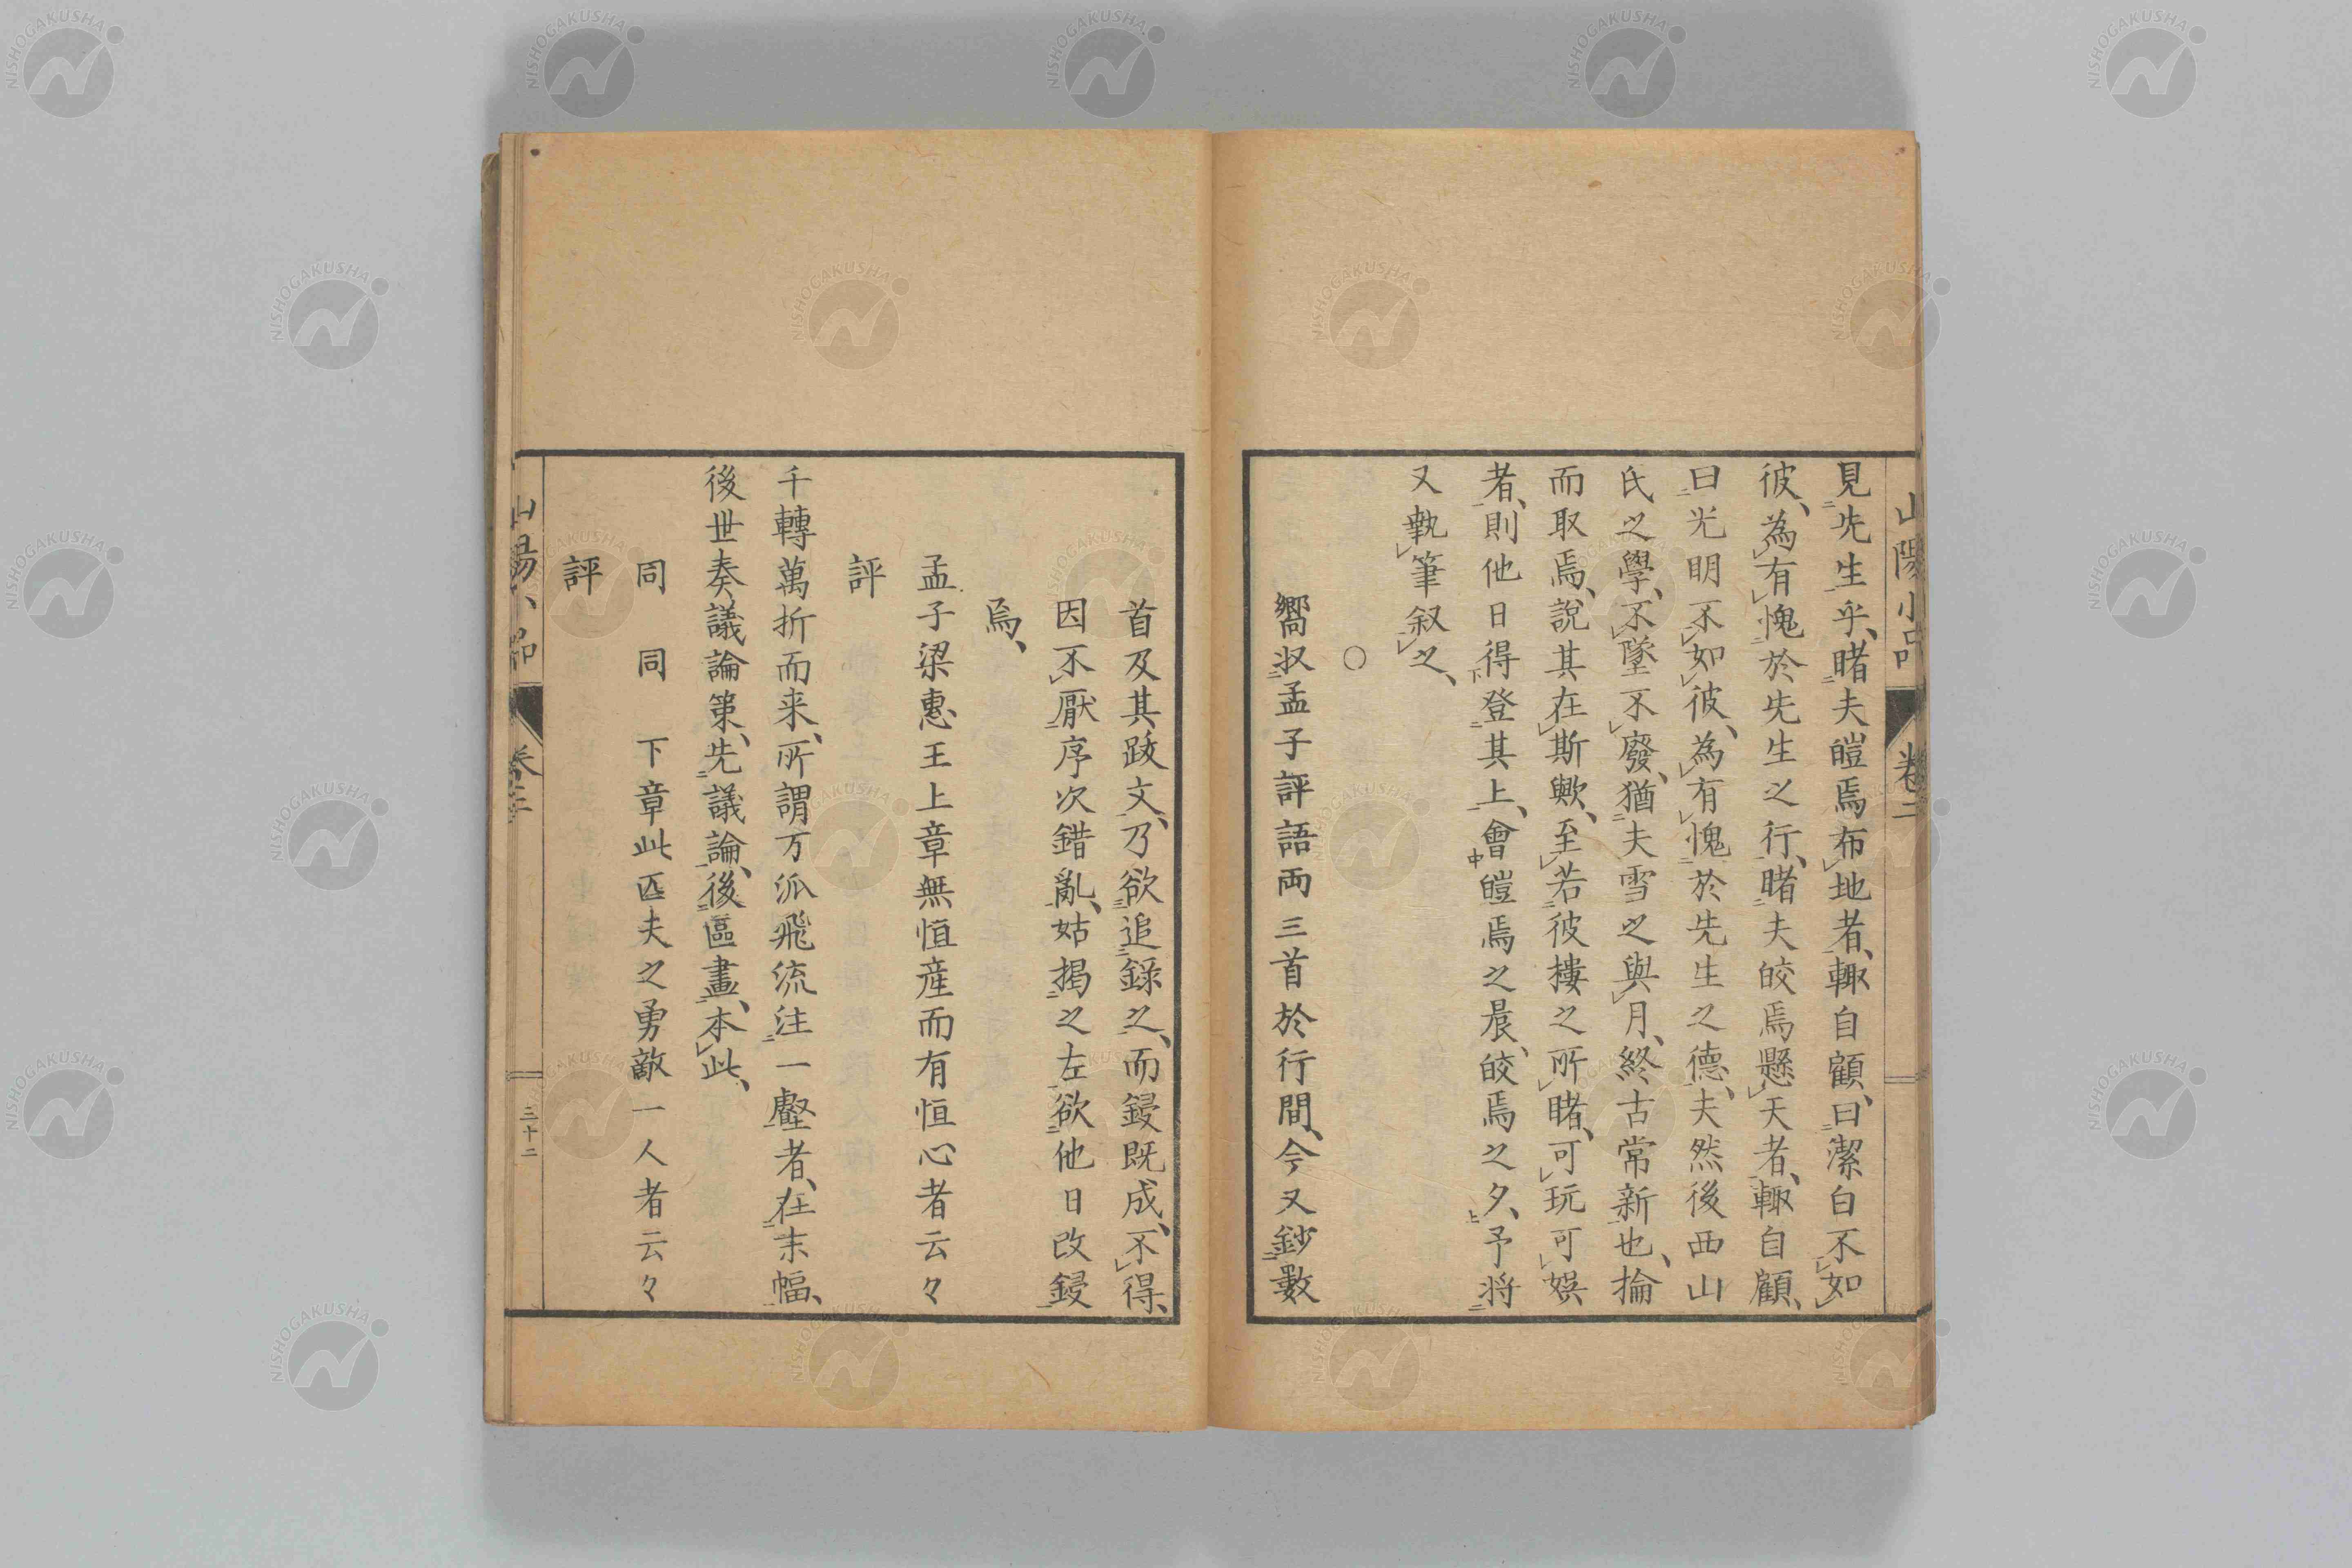 山陽小品 卷二
見先生乎、睹夫皚焉布地者、輙自顧、曰潔白不如
彼、為有愧於先生之行、睹夫皎焉懸天者、輙自顧、
曰光明不如彼、為有愧於先生之德、夫然後西山
氏之學、不墜不廢、猶夫雪之與月、終古常新也、掄
而取焉、說其在斯歟、至若彼樓之所睹、可玩可娯
者、則他日得登其上、會皚焉之晨、皎焉之夕、予将
又執筆叙之、
○
嚮収孟子評語両三首於行間、今又鈔數
首及其跋文、乃欲追録之、而鋟既成、不得、
因不厭序次錯亂、姑掲之左、欲他日改鋟
焉、
孟子梁惠王上章無恒産而有恒心者云々
評
千轉萬折而来、所謂万派飛流注一壑者、在末幅、
後世奏議論策、先議論、後區畫、本此、
同 同 下章此匹夫之勇敵一人者云々
評
山陽小品 卷二 三十二
NISHOGAKUSHA